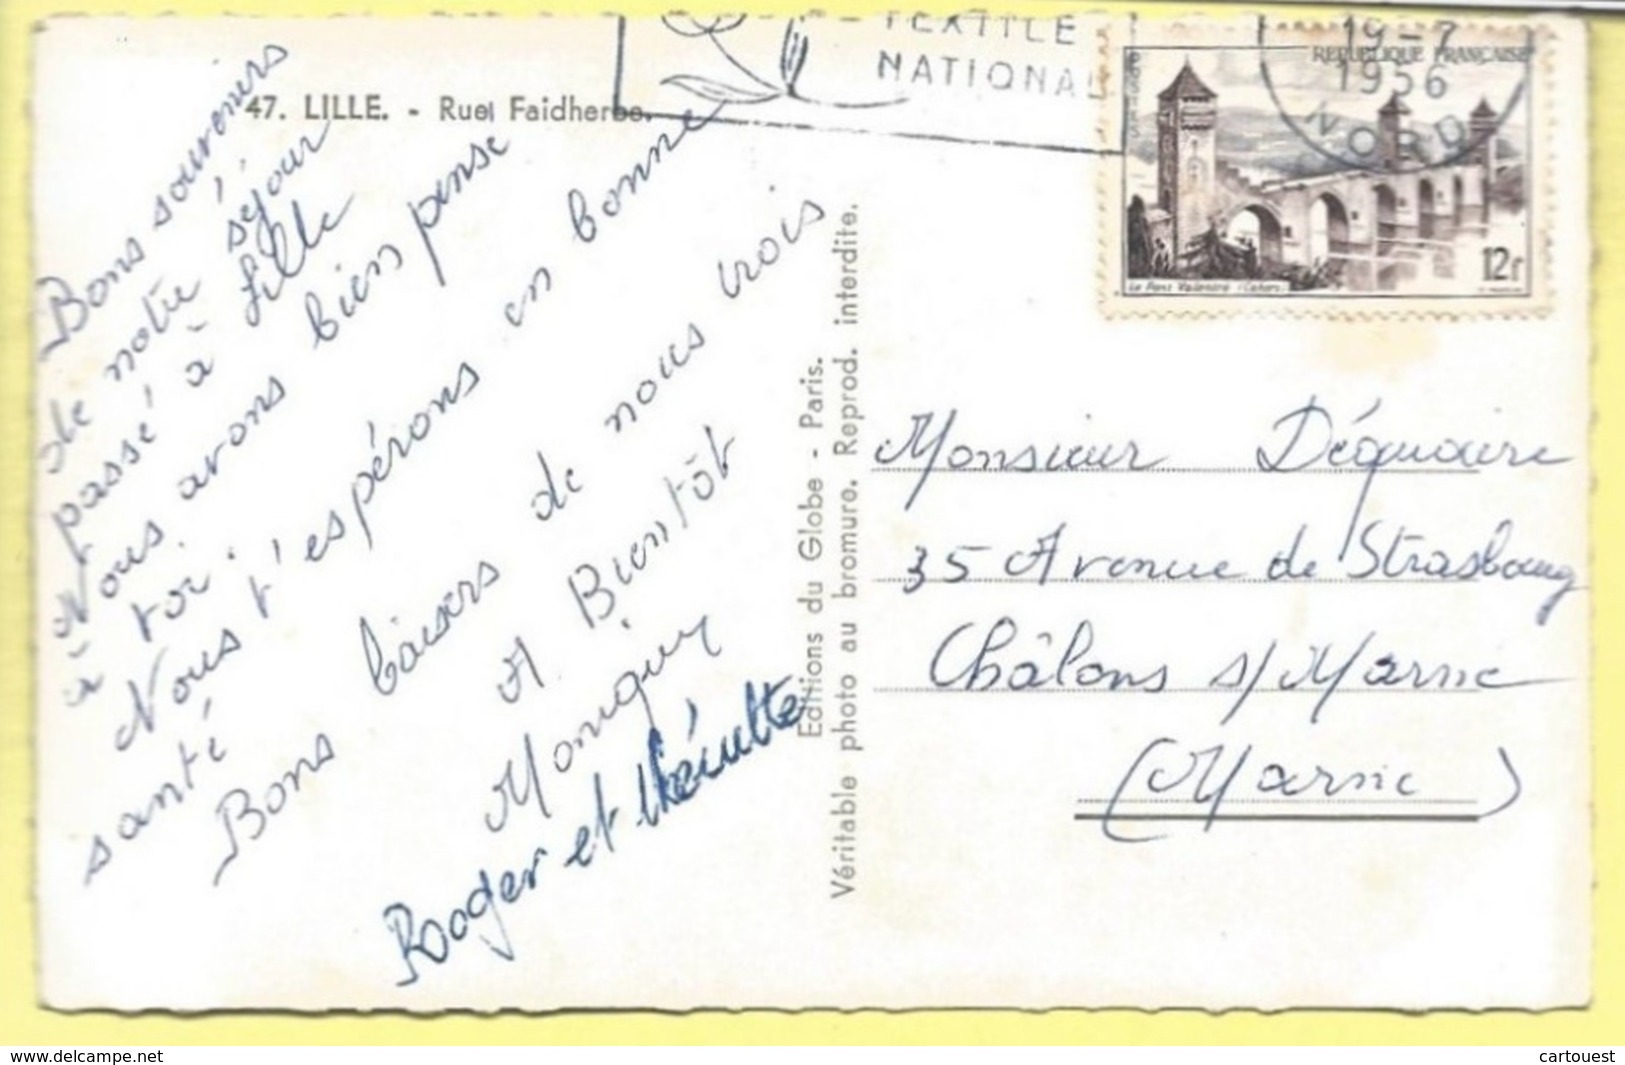 TEXTILE
NATIONAL
19-7
1956
NORD
REPUBLIQUE FRANÇAISE
POSTES
12f
Le Pont Valentré (Cahors)
47. LILLE. - Rue Faidherbe.
Bons souvenirs
de notre séjour
passé à Lille
Nous avons bien pensé
à toi.
Nous t'espérons en bonne
santé
Bons baisers de nous trois
A Bientôt
Moniquy
Roger et
Editions du Globe - Paris.
Véritable photo au bromure. Reprod. interdite.
Monsieur Déquaire
35 Avenue de Strasbourg
Châlons s/Marne
(Marne)
www.delcampe.net
cartouest